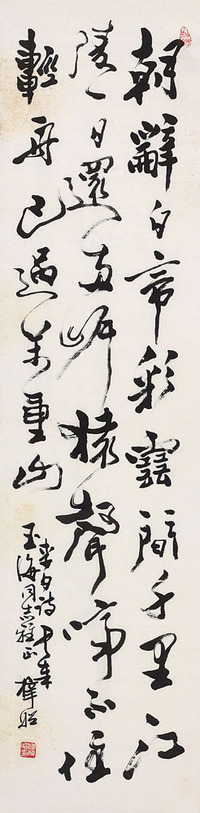 朝辭白帝彩雲間千里江
陵一日還兩岸猿聲啼不住
輕舟已過萬重山
李白詩
玉海同志雅正